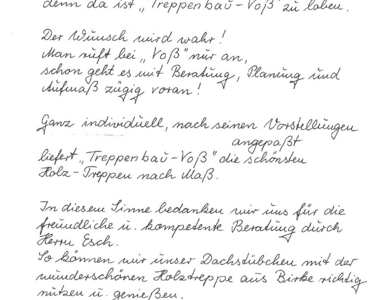 denn da ist „Treppenbau-Voß" zu loben.
Der Wunsch wird wahr!
Man ruft bei „Voß" nur an,
schon geht es mit Beratung, Planung und
Aufmaß zügig voran!
Ganz individuell, nach seinen Vorstellungen
angepaßt
liefert „Treppenbau-Voß" die schönsten
Holz-Treppen nach Maß.
In diesem Sinne bedanken wir uns für die
freundliche u. kompetente Beratung durch
Herrn Esch.
So können wir unser Dachstübchen mit der
wunderschönen Holztreppe aus Birke richtig
nutzen u. genießen.